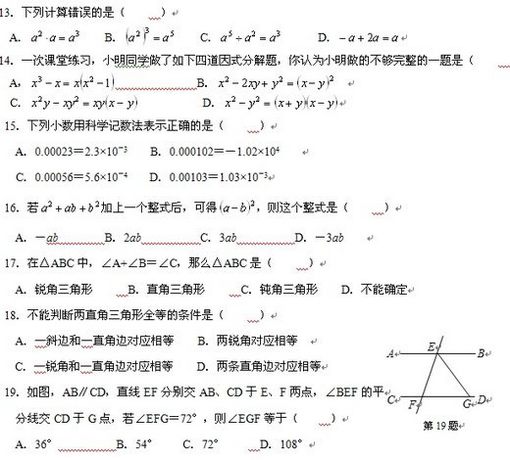 13. 下列计算错误的是（　　）
A. a²·a=a³ B. (a²)³=a⁵ C. a⁵÷a²=a³ D. −a+2a=a
14. 一次课堂练习，小明同学做了如下四道因式分解题，你认为小明做的不够完整的一题是（
A, x³−x=x(x²−1) B. x²−2xy+y²=(x−y)²
C. x²y−xy²=xy(x−y) D. x²−y²=(x+y)(x−y)
15. 下列小数用科学记数法表示正确的是（　　）
A. 0.00023=2.3×10⁻³ B. 0.000102=−1.02×10⁴
C. 0.00056=5.6×10⁻⁴ D. 0.00103=1.03×10⁻³
16. 若a²+ab+b²加上一个整式后，可得(a−b)²，则这个整式是（　　）
A. −ab B. 2ab C. 3ab D. −3ab
17. 在△ABC中，∠A+∠B=∠C，那么△ABC是（　　）
A. 锐角三角形 B. 直角三角形 C. 钝角三角形 D. 不能确定
18. 不能判断两直角三角形全等的条件是（　　）
A. 一斜边和一直角边对应相等 B. 两锐角对应相等
C. 一锐角和一直角边对应相等 D. 两条直角边对应相等
19. 如图，AB∥CD，直线EF分别交AB、CD于E、F两点，∠BEF的平
分线交CD于G点，若∠EFG=72°，则∠EGF等于（　　）
A. 36° B. 54° C. 72° D. 108°
A E B
C F G D
第19题